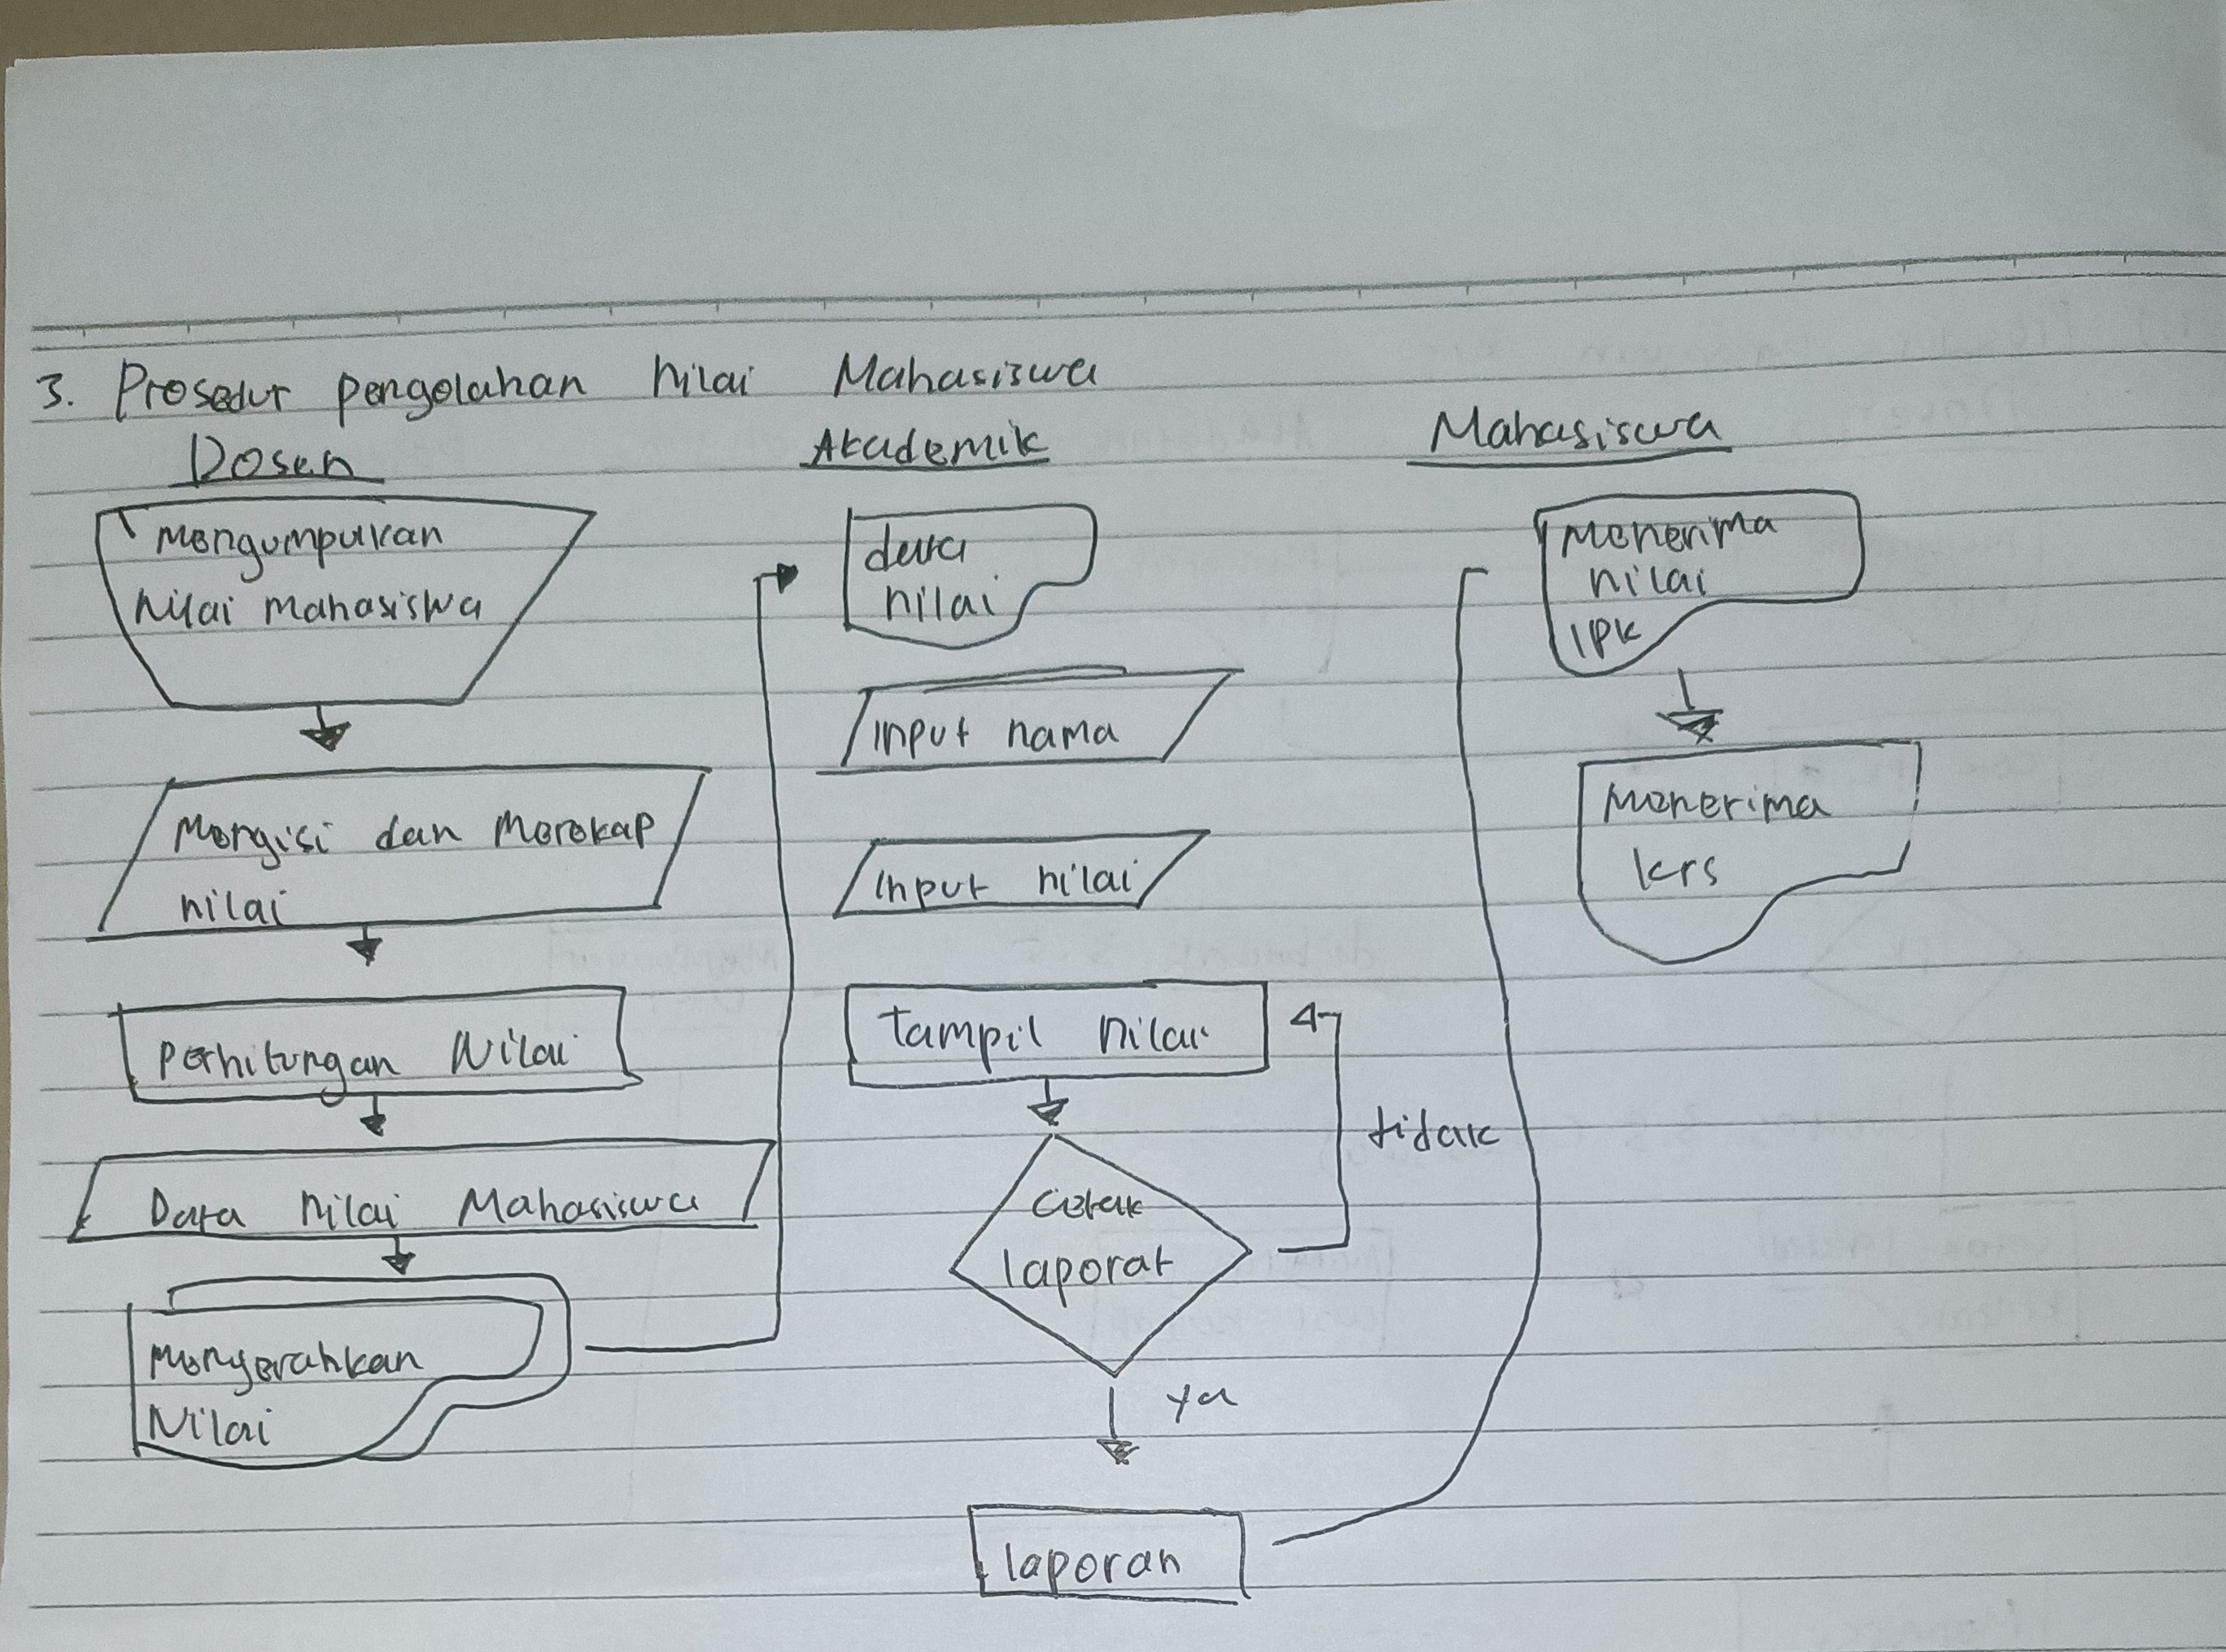 3. Prosedur pengolahan nilai Mahasiswa
Dosen
Mengumpulkan
nilai mahasiswa
Mengisi dan Merekap
nilai
Perhitungan Nilai
Data nilai Mahasiswa
Menyerahkan
Nilai
Akademik
data
nilai
Input nama
Input nilai
tampil nilai
tidak
Cetak
laporat
ya
laporan
Mahasiswa
Menerima
nilai
IPK
Menerima
krs